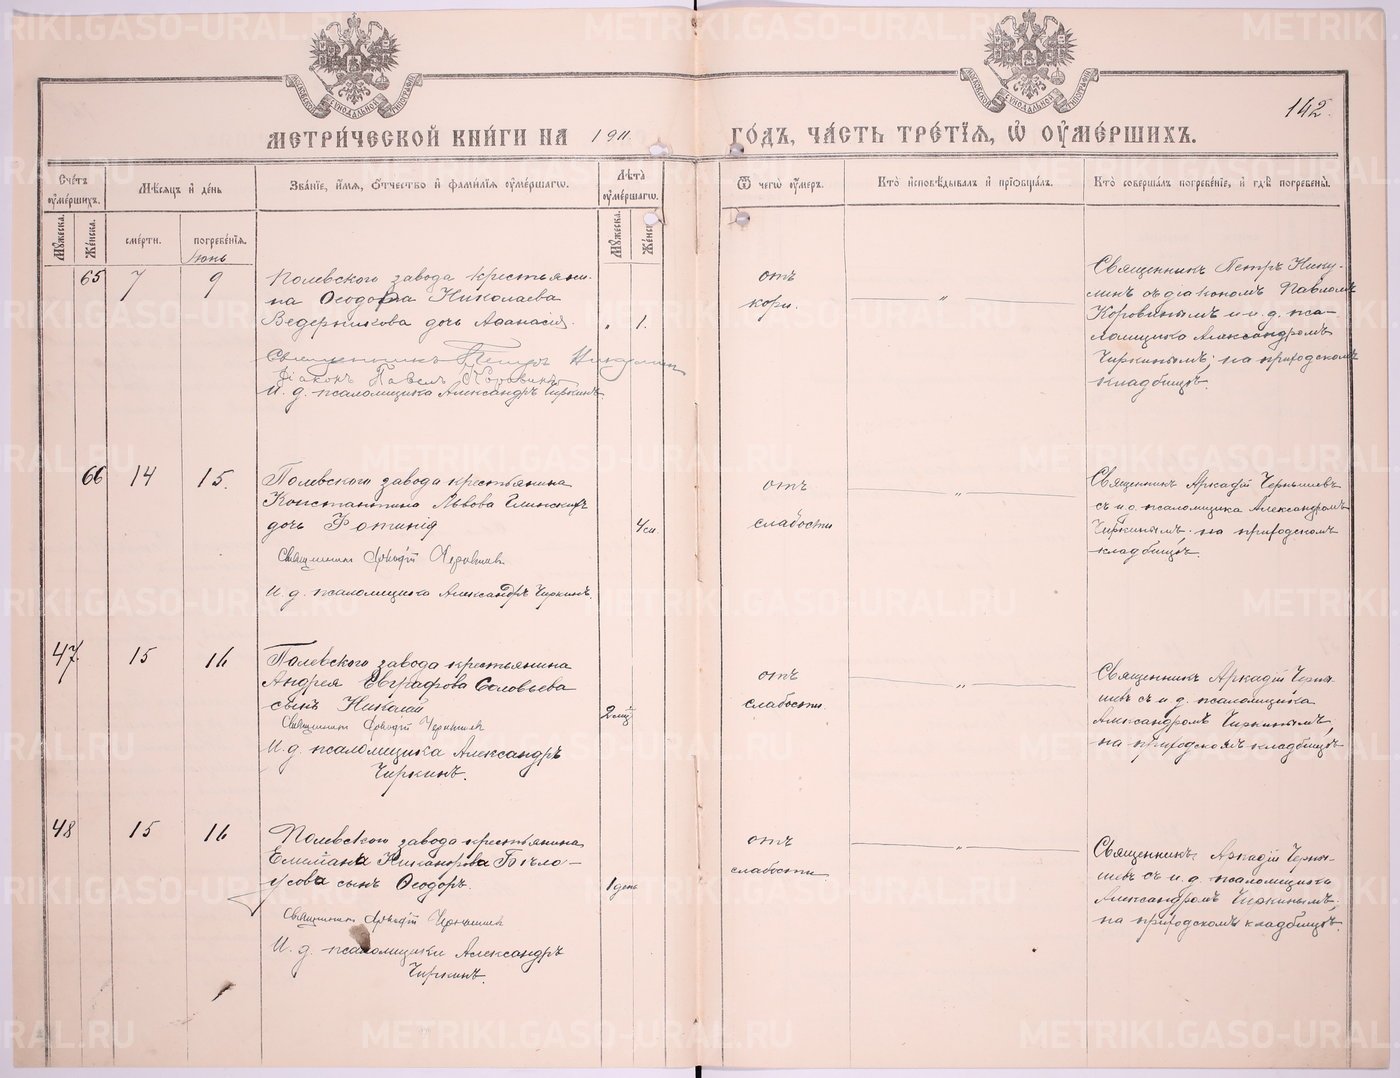 142.
МЕТРИ́ЧЕСКОЙ КНИ́ГИ НА 1911 ГО́ДЪ, ЧА́СТЬ ТРЕ́ТІЯ, Ѡ ОУ҆МЕ́РШИХЪ.
Сче́тъ оу҆ме́ршихъ.
Мѣ́сяцъ и҆ де́нь
Зва́ніе, и҆́мя, ѻ҆́тчество и҆ фами́лія оу҆ме́ршагѡ.
Лѣ́та оу҆ме́ршагѡ.
Ѿ чегѡ̀ оу҆́меръ.
Кто̀ и҆сповѣ́дывалъ и҆ прїѡбща́лъ.
Кто̀ соверша́лъ погребе́ніе, и҆ гдѣ̀ погребены̀.
Мꙋ́жеска.
Же́нска.
сме́рти.
погребе́нія.
Мꙋ́жеска.
Же́нск
Іюнь
65 7 9
Полевского завода крестьяни-
на Ѳеодора Николаева
Ведерникова дочь Аѳанасія.
" 1.
Священникъ Петръ Никулин
Діаконъ Павелъ Коровинъ
И. д. псаломщика Александръ Чиркинъ.
отъ
кори.
"
Священникъ Петръ Нику-
линъ съ діакономъ Павломъ
Коровинымъ и и. д. пса-
ломщика Александромъ
Чиркинымъ; на приходскомъ
кладбищѣ.
66 14 15.
Полевского завода крестьянина
Константина Львова Глинскихъ
дочь Фотинія
4
Священникъ Аркадій Чернышевъ
И. д. псаломщика Александръ Чиркинъ.
отъ
слабости
"
Священникъ Аркадій Чернышевъ
съ и. о. псаломщика Александромъ
Чиркинымъ, на приходскомъ
кладбищѣ.
47. 15 16
Полевского завода крестьянина
Андрея Евграфова Соловьева
сынъ Николай
2
Священникъ Аркадій Чернышевъ
И. д. псаломщика Александръ
Чиркинъ.
отъ
слабости
"
Священникъ Аркадій Черны-
шевъ съ и. д. псаломщика
Александромъ Чиркинымъ,
на приходскомъ кладбищѣ
48 15 16
Полевского завода крестьянина
Емелiана Никанорова Бѣло-
усова сынъ Ѳеодоръ.
1 день
Священникъ Аркадій Чернышевъ
И. д. псаломщика Александръ
Чиркинъ.
отъ
слабости
"
Священникъ Аркадій Черны-
шевъ съ и. д. псаломщика
Александромъ Чиркинымъ;
на приходскомъ кладбищѣ.
METRIKI.GASO-URAL.RU